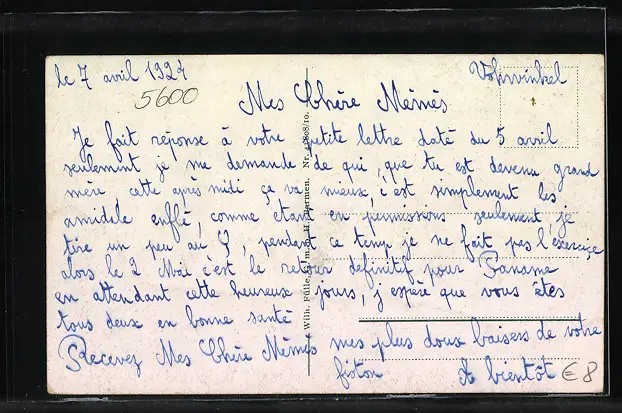 le 7 avril 1924
Vohwinkel
5600
Mes Chère Mémés
Je fait réponse à votre petite lettre daté du 5 avril
seulement je me demande de qui, que tu est devenu grand
mère cette après midi ça va mieux, c'est simplement les
amidale enflé, comme etant en permissions seulement, je
tire un peu au pendant ce temp je ne fait pas l'exercice
alors le 2 Mai c'est le retour définitif pour Paname
en attendant cette heureux jours, j'espère que vous êtes
tous deux en bonne santé
Recevez Mes Chère Mémés mes plus doux baisers de votre
fiston
A bientôt
€ 8
Wilh. Fülle, Barmen